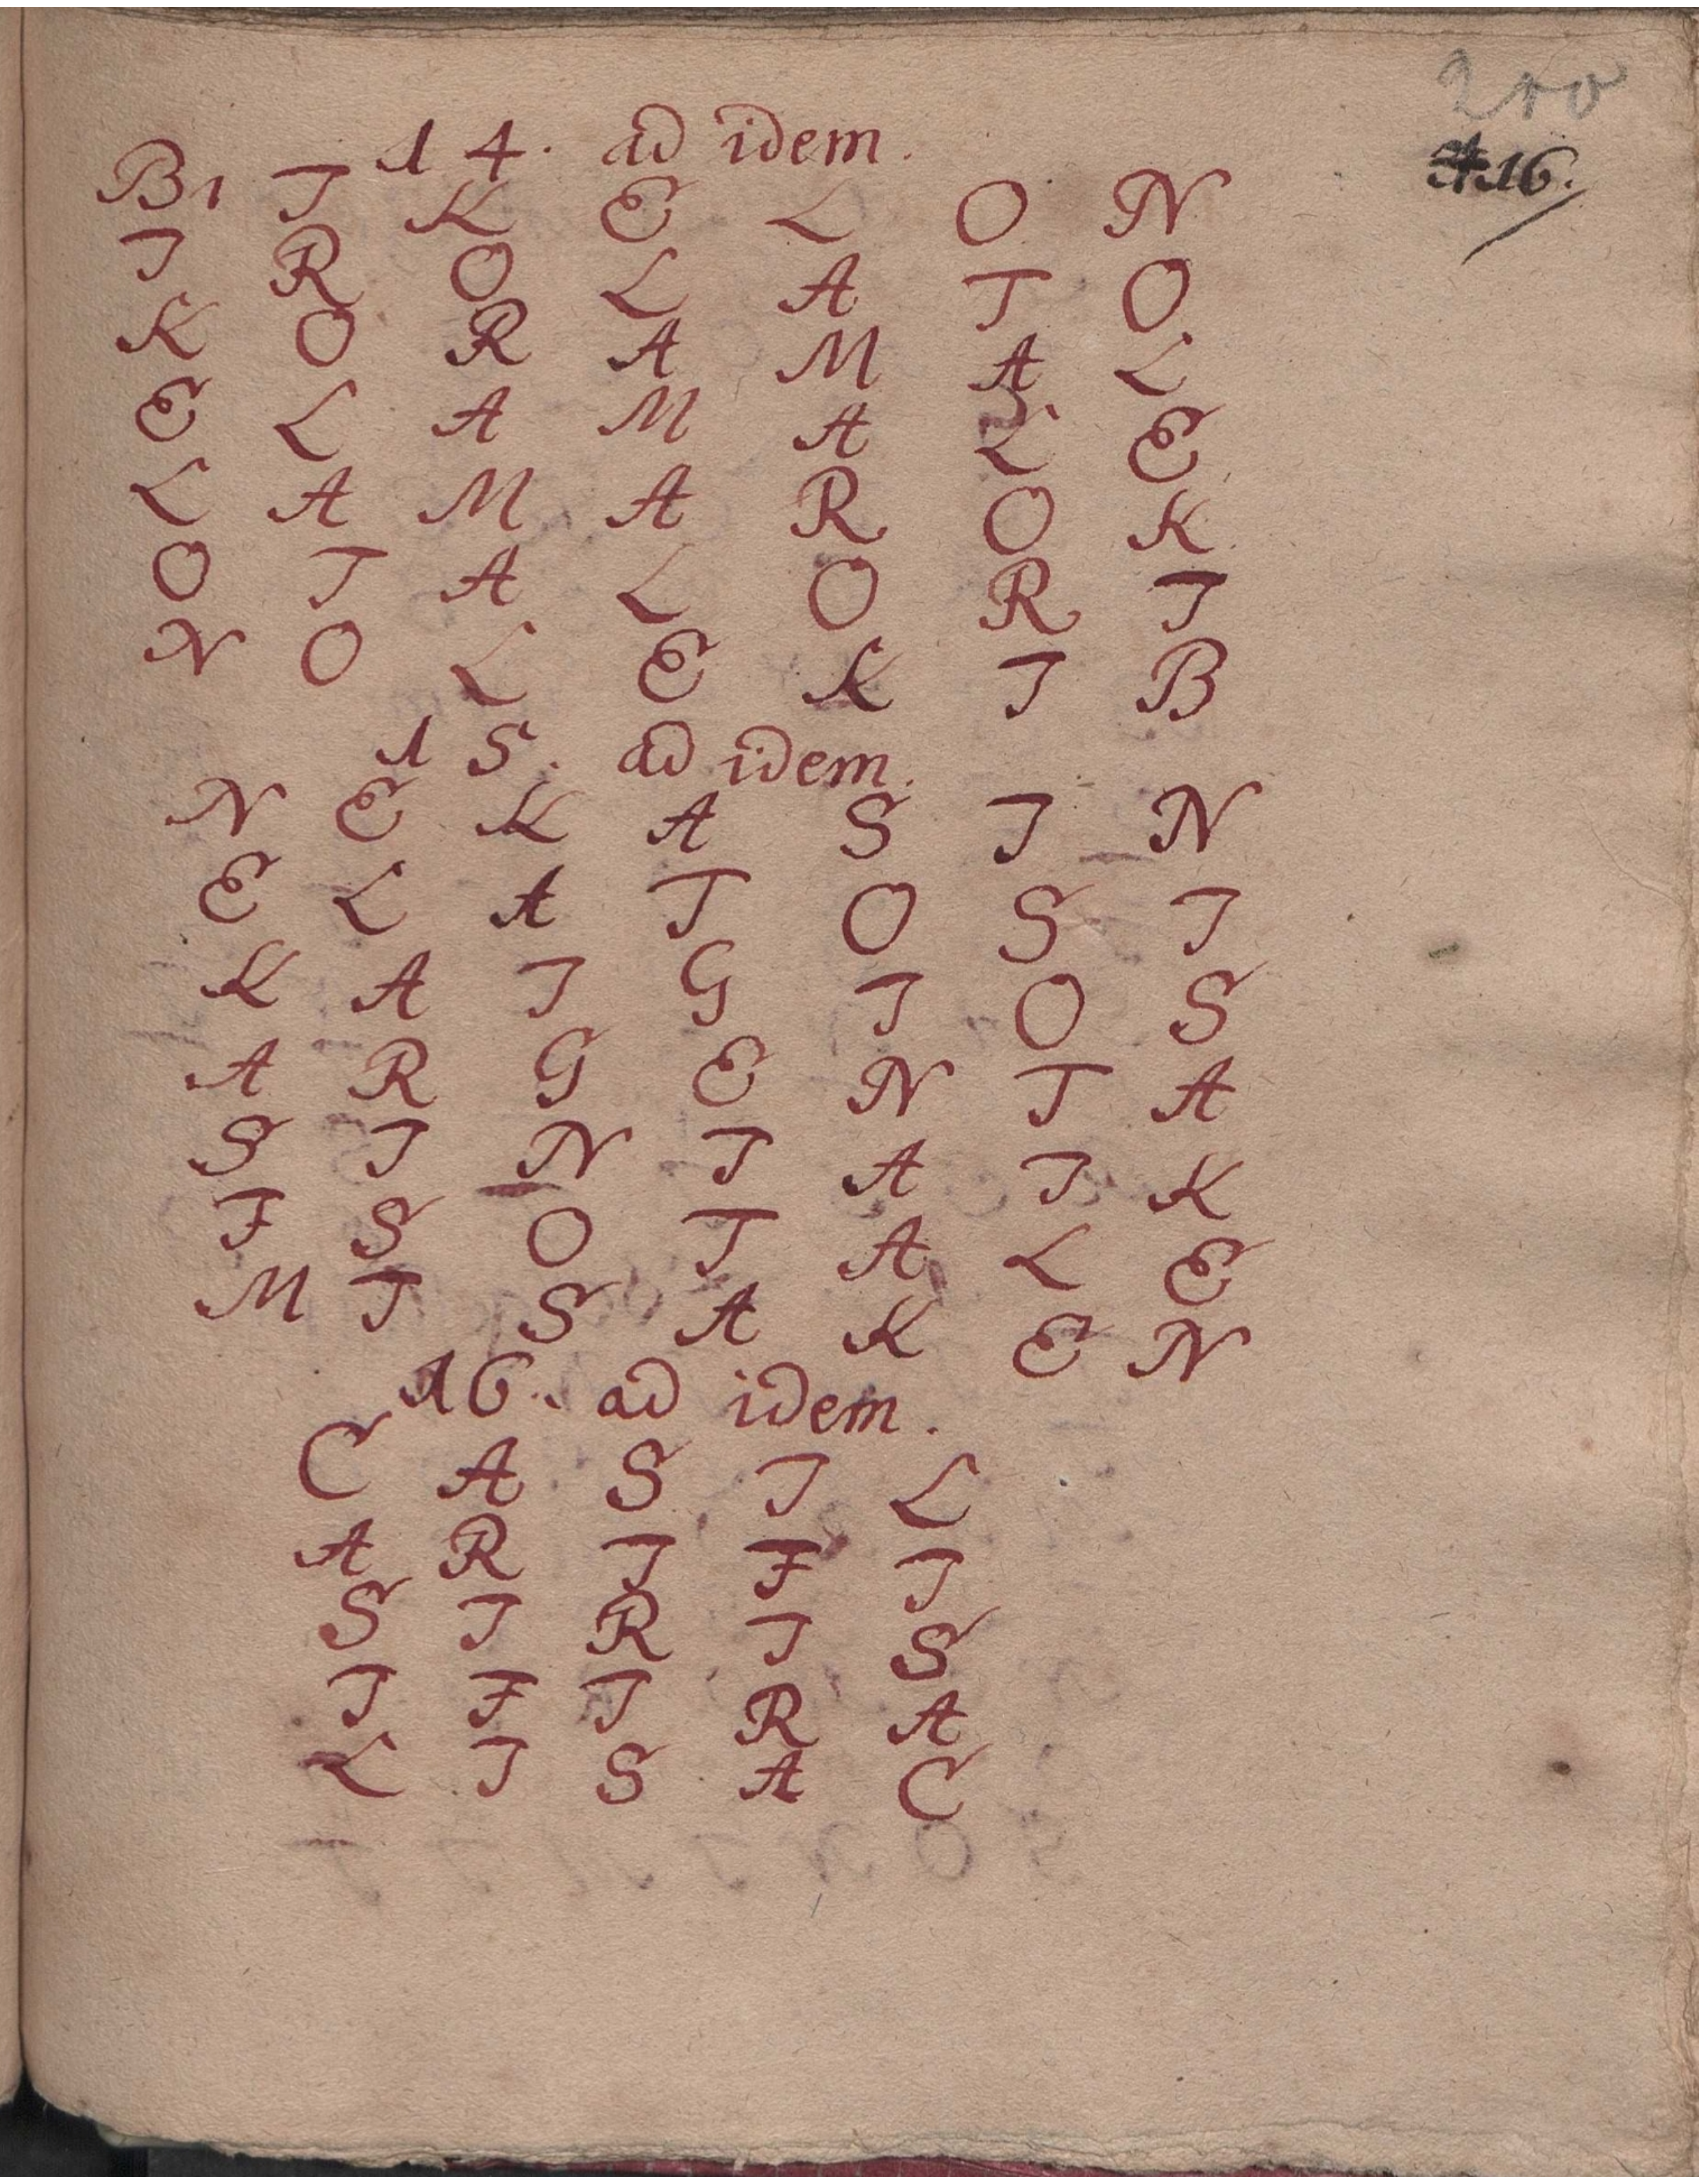 16.
14. ad idem.
B1 I K E L O N
I R O L A T O
K O R A M A L
E L A M A L E
L A M A R O K
O T A L O R I
N O L E K I B
15. ad idem.
N E K A S I N
E L A T O S I
K A I G I O S
A R G E N T A
S I N I A I K
F S O T A L E
M I S A K E N
16. ad idem.
C A S I L
A R I F I
S I R I S
I F I R A
L I S A C